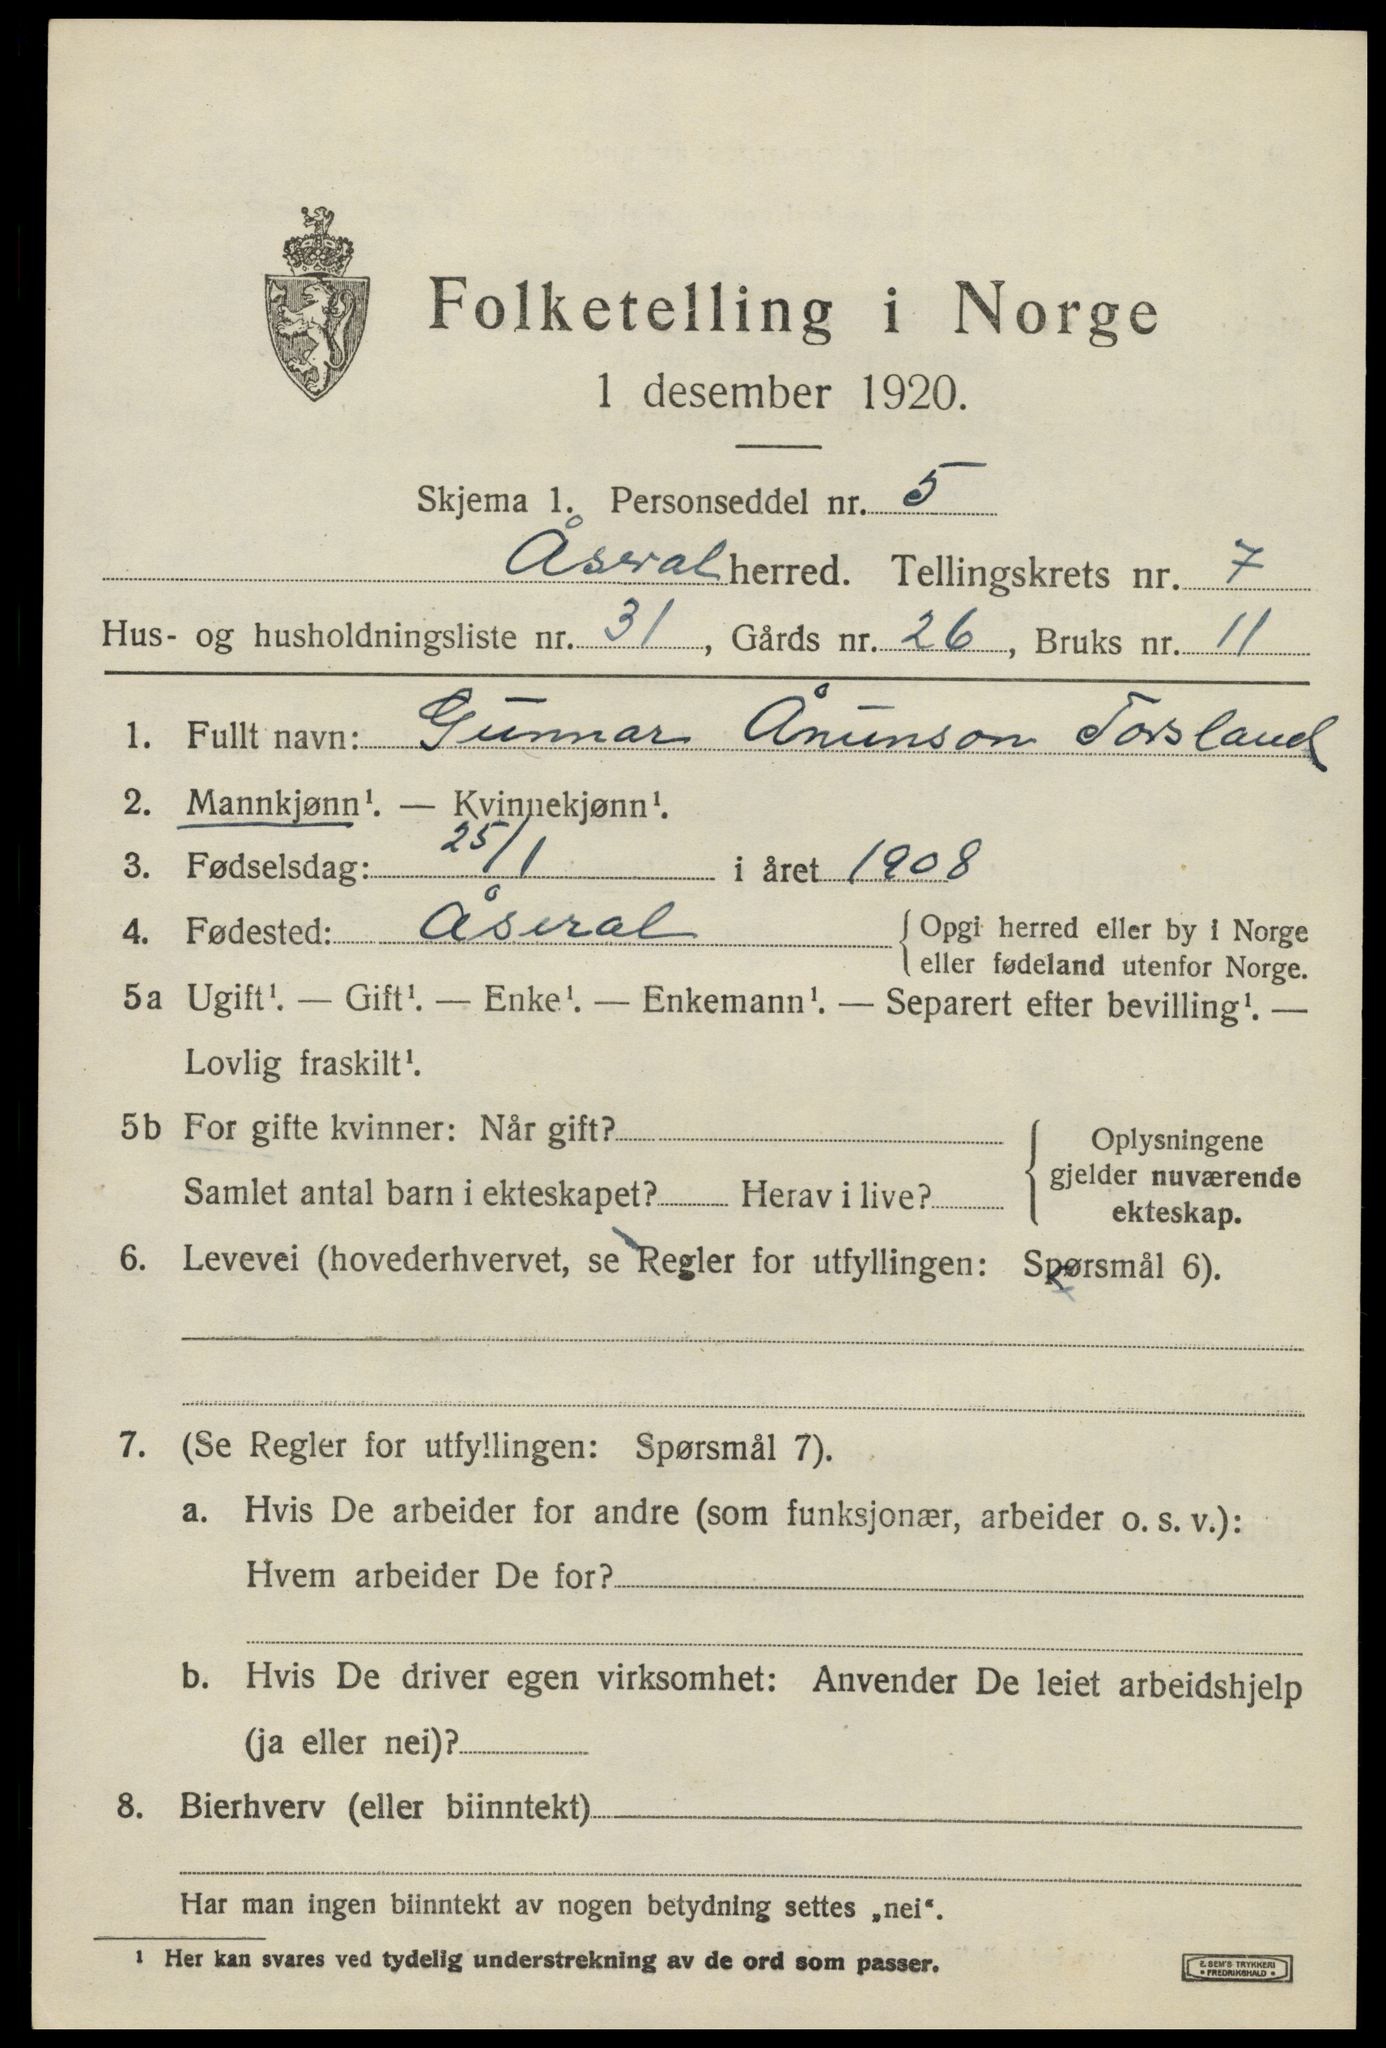 Folketelling i Norge
1 desember 1920.
Skjema 1. Personseddel nr. 5
Åseral herred. Tellingskrets nr. 7
Hus- og husholdningsliste nr. 31, Gårds nr. 26, Bruks nr. 11
1. Fullt navn: Gunnar Ånunson Torsland
2. Mannkjønn¹. — Kvinnekjønn¹.
3. Fødselsdag: 25/1 i året 1908
4. Fødested: Åseral { Opgi herred eller by i Norge
eller fødeland utenfor Norge.
5a Ugift¹. — Gift¹. — Enke¹. — Enkemann¹. — Separert efter bevilling¹. —
Lovlig fraskilt¹.
5b For gifte kvinner: Når gift?
Samlet antal barn i ekteskapet? Herav i live?
{ Oplysningene
gjelder nuværende
ekteskap.
6. Levevei (hovederhvervet, se Regler for utfyllingen: Spørsmål 6).
7. (Se Regler for utfyllingen: Spørsmål 7).
a. Hvis De arbeider for andre (som funksjonær, arbeider o. s. v.):
Hvem arbeider De for?
b. Hvis De driver egen virksomhet: Anvender De leiet arbeidshjelp
(ja eller nei)?
8. Bierhverv (eller biinntekt)
Har man ingen biinntekt av nogen betydning settes „nei“.
¹ Her kan svares ved tydelig understrekning av de ord som passer.
E. SEM'S TRYKKERI
• FREDRIKSHALD •